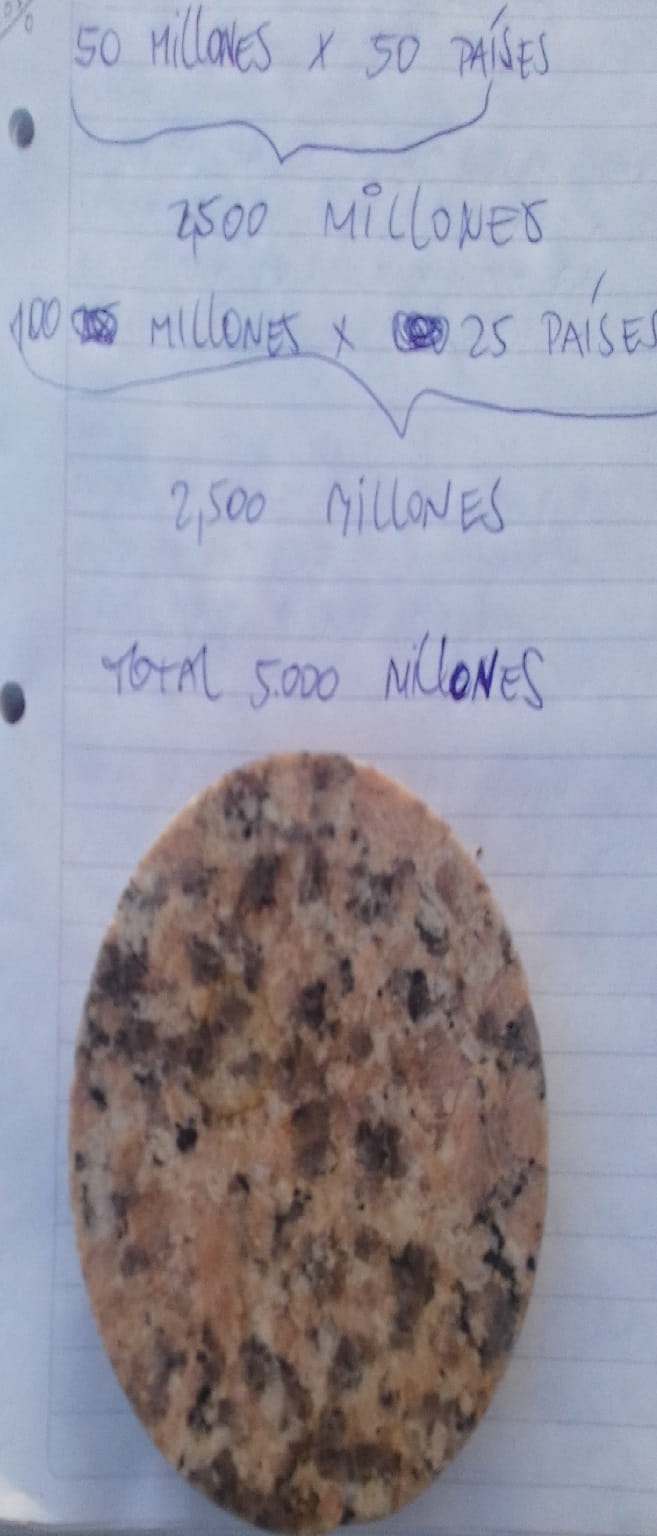 50 MILLONES X 50 PAÍSES
2,500 MILLONES
100 MILLONES X 25 PAÍSES
2,500 MILLONES
TOTAL 5.000 MILLONES